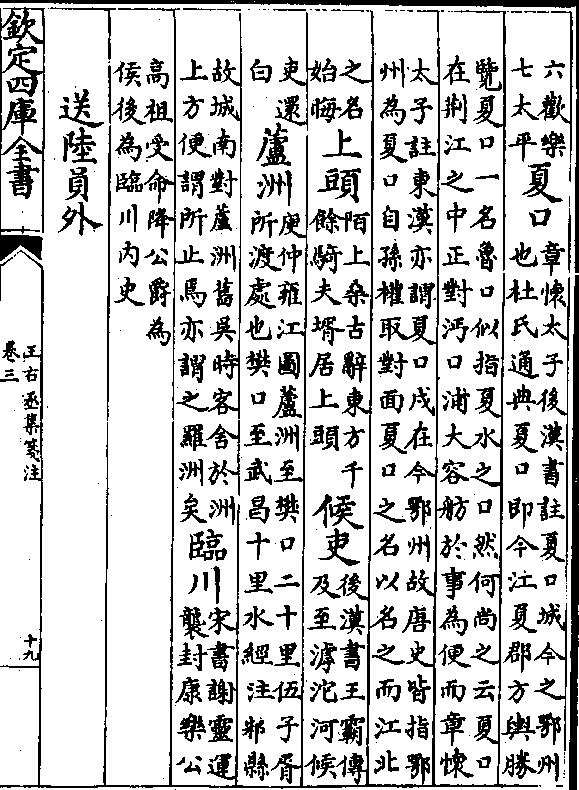 六歡樂
七太平
夏口
章懷太子後漢書註夏口城今之鄂州
也杜氏通典夏口即今江夏郡方輿勝
覽夏口一名魯口似指夏水之口然何尚之云夏口
在荆江之中正對沔口浦大容舫於事為便而章懐
太子註東漢亦謂夏口戍在今鄂州故唐史皆指鄂
州為夏口自孫權取對面夏口之名以名之而江北
之名
始晦
上頭
陌上桑古辭東方千
餘騎夫壻居上頭
候吏
後漢書王霸傳
及至滹沱河候
吏還
白
蘆洲
庾仲雍江圖蘆洲至樊口二十里伍子胥
所渡處也樊口至武昌十里水經注邾縣
故城南對蘆洲舊吳時客舍於洲
上方便謂所止焉亦謂之羅洲矣
臨川
宋書謝靈運
襲封康樂公
高祖受命降公爵為
侯後為臨川内史
送陸員外
欽定四庫全書
王右丞集箋注
卷三
十九